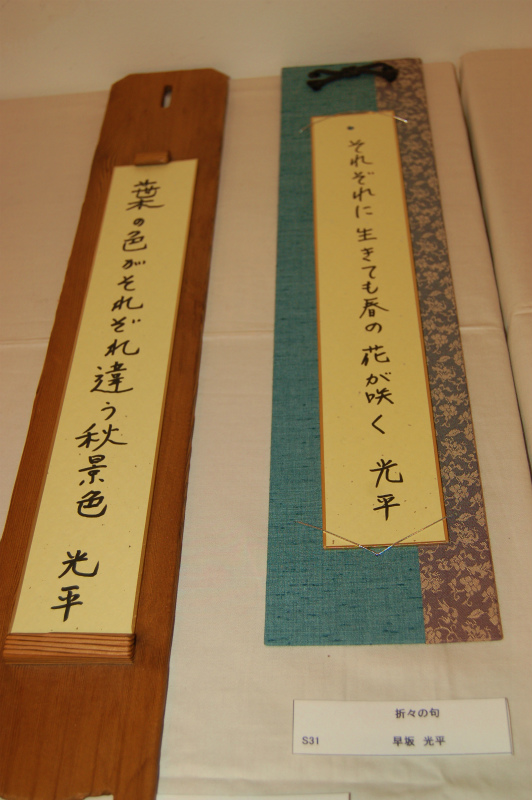 それぞれに生きても春の花が咲く 光平
葉の色がそれぞれ違う秋景色 光平
折々の句
S31 早坂 光平